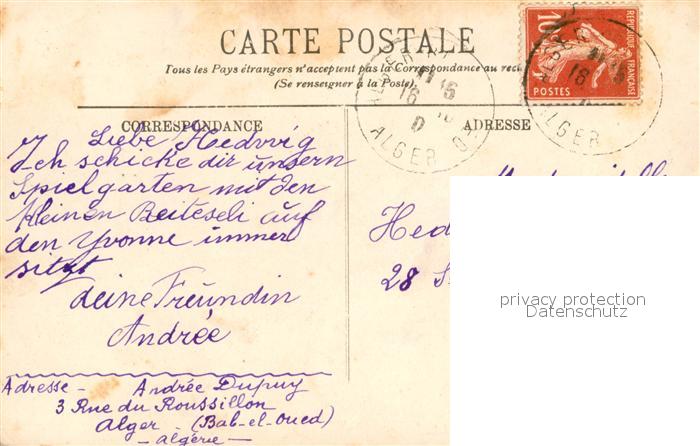 CARTE POSTALE
Tous les Pays étrangers n'acceptent pas la Correspondance au
(Se renseigner à la Poste).
10
POSTES
REPUBLIQUE FRANÇAISE
ALGER
ALGER
CORRESPONDANCE
ADRESSE
Liebe Hedwig
Ich schicke dir unsern
Spielgarten mit den
kleinen Beiteseli auf
den Yvonne immer
sitzt
deine Freundin
Andrée
Hed
28
Adresse - Andrée Dupuy
3 Rue du Roussillon
Alger - (Bab-el-Oued)
- Algérie -
privacy protection
Datenschutz